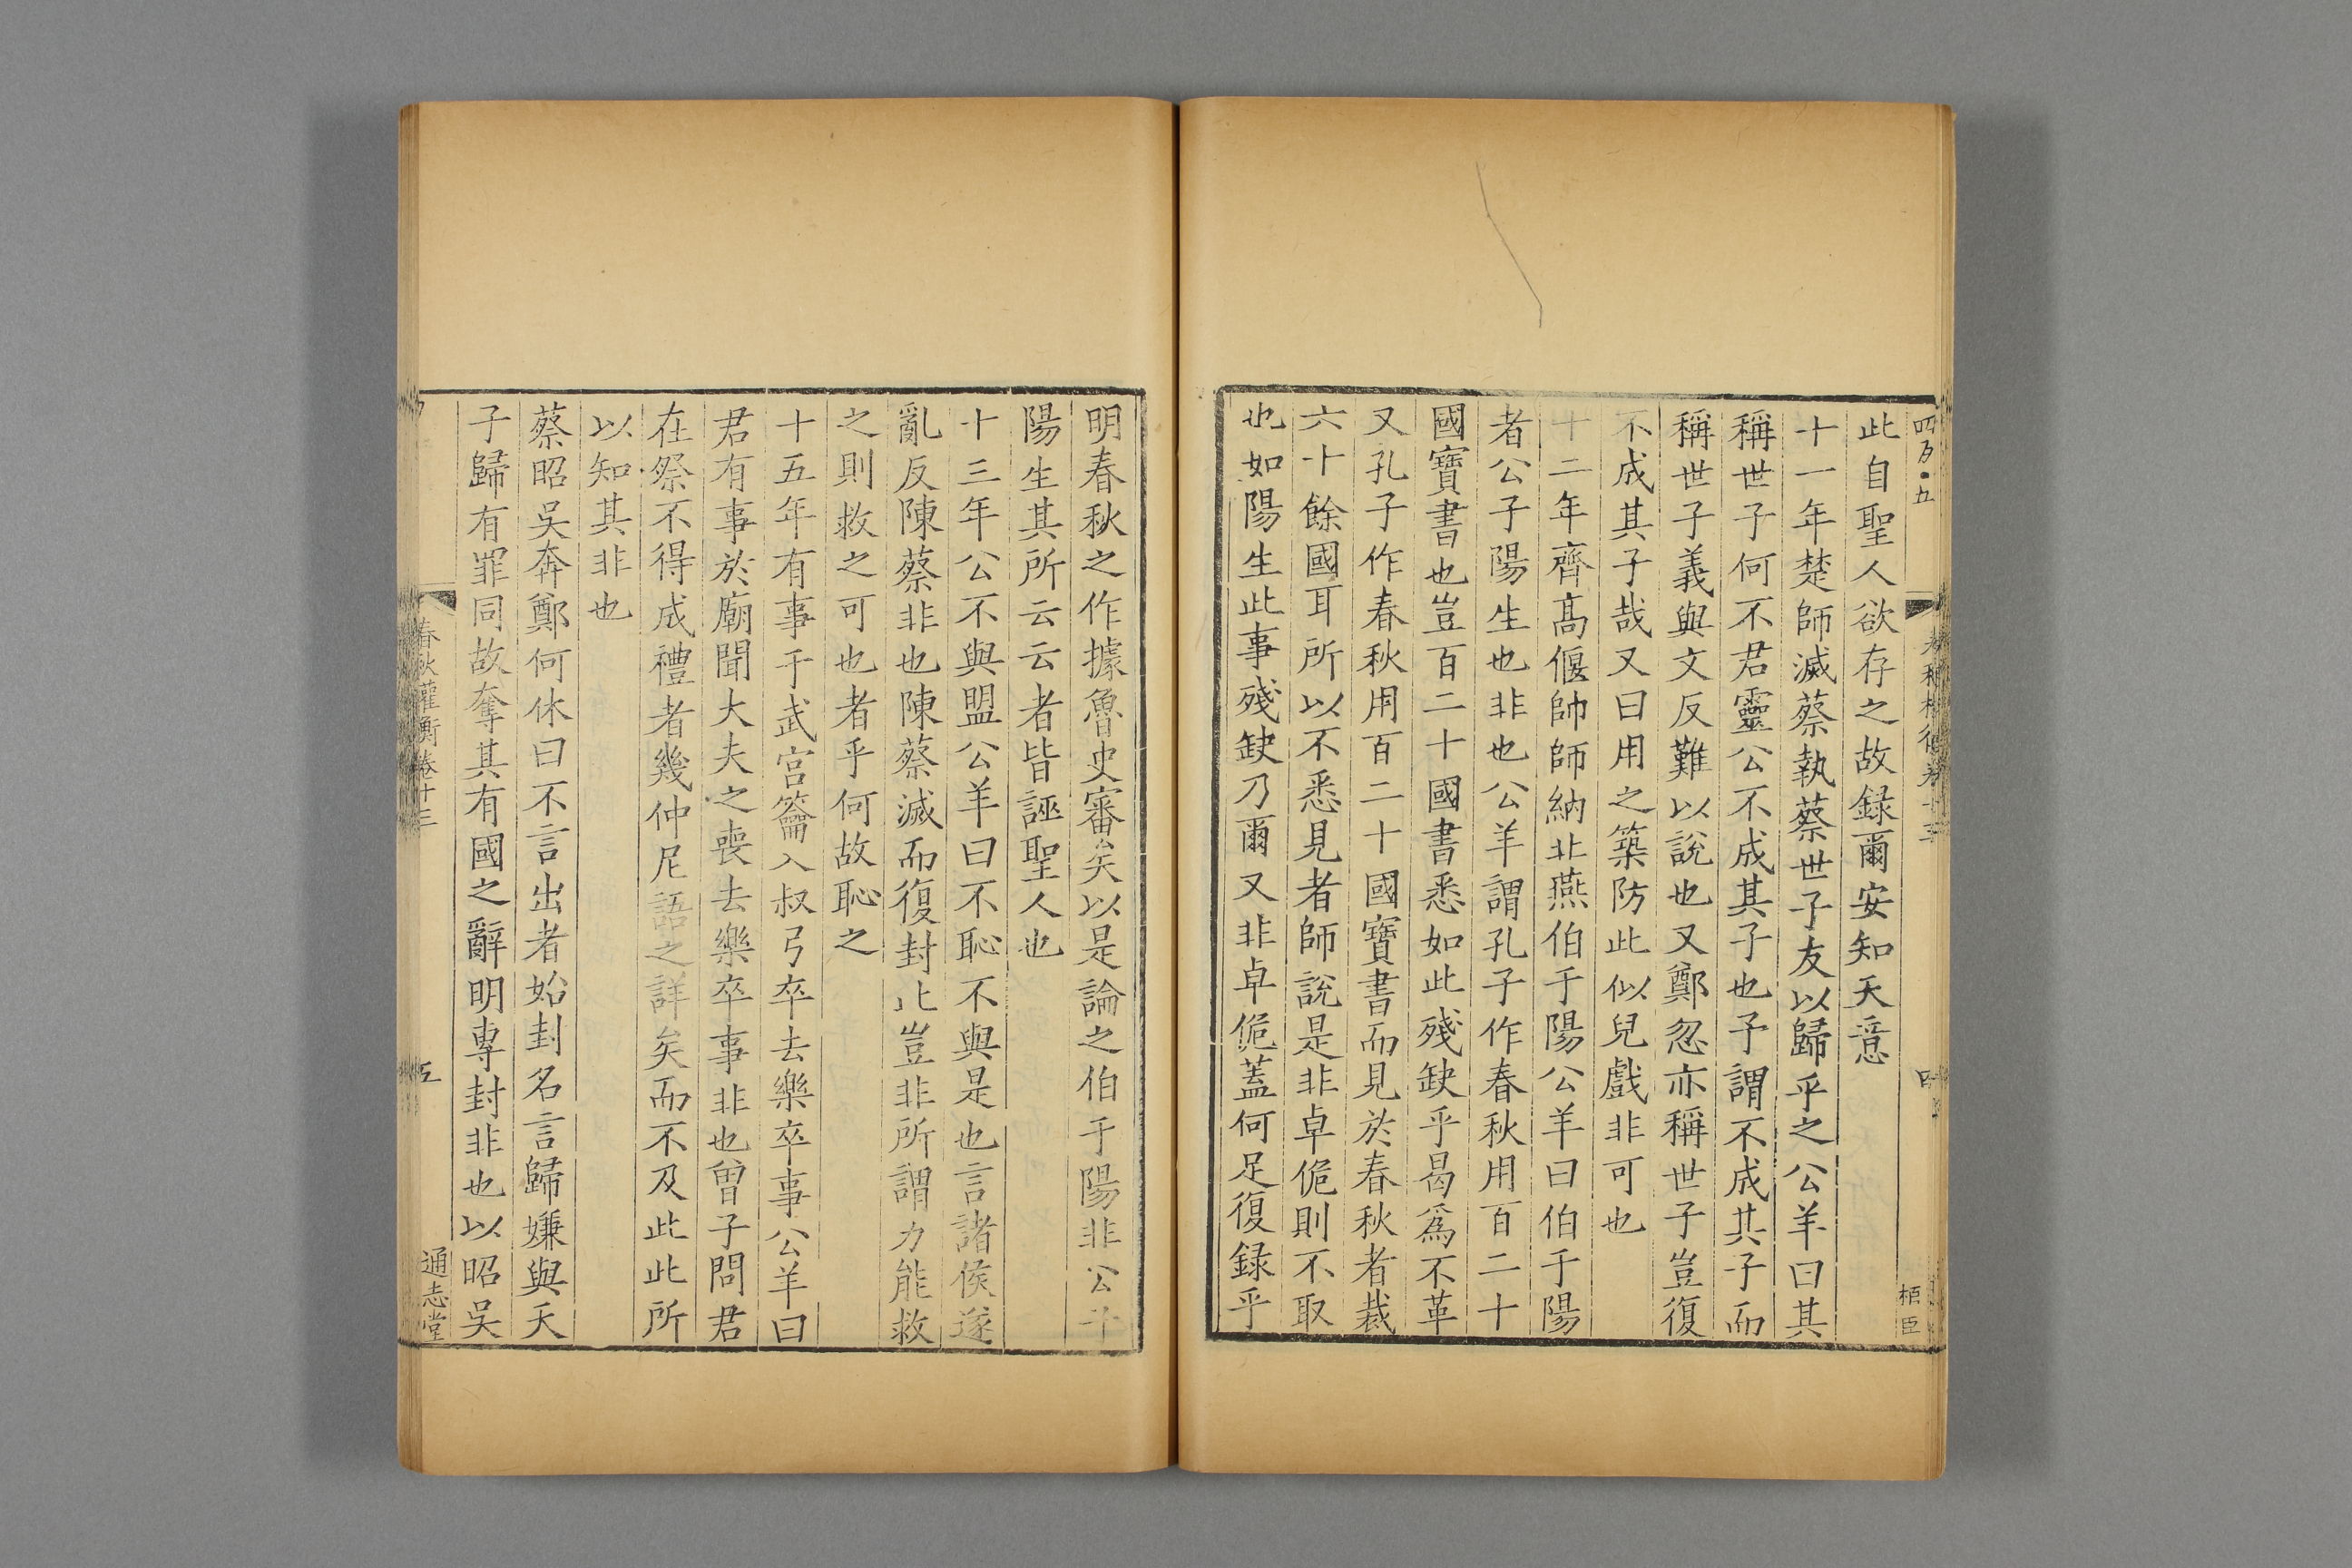 此自聖人欲存之故録爾安知天意
十一年楚師滅蔡執蔡世子友以歸乎之公羊曰其
稱世子何不君靈公不成其子也予謂不成其子而
稱世子義與文反難以說也又鄭忽亦稱世子豈復
不成其子哉又曰用之築防此似兒戲非可也
十二年齊髙偃帥師納北燕伯于陽公羊曰伯于陽
者公子陽生也非也公羊謂孔子作春秋用百二十
國寶書也豈百二十國書悉如此殘缺乎曷爲不革
又孔子作春秋用百二十國寶書而見於春秋者裁
六十餘國耳所以不悉見者師說是非卓佹則不取
也如陽生此事殘缺乃爾又非卓佹蓋何足復録乎
栢臣
明春秋之作據魯史審矣以是論之伯于陽非公子
陽生其所云云者皆誣聖人也
十三年公不與盟公羊曰不恥不與是也言諸侯遂
亂反陳蔡非也陳蔡滅而復封此豈非所謂力能救
之則救之可也者乎何故恥之
十五年有事于武宫籥入叔弓卒去樂卒事公羊曰
君有事於廟聞大夫之喪去樂卒事非也曾子問君
在祭不得成禮者幾仲尼語之詳矣而不及此此所
以知其非也
蔡昭吴奔鄭何休曰不言出者始封名言歸嫌與天
子歸有罪同故奪其有國之辭明專封非也以昭吴
春秋權衡卷十三
五
通志堂